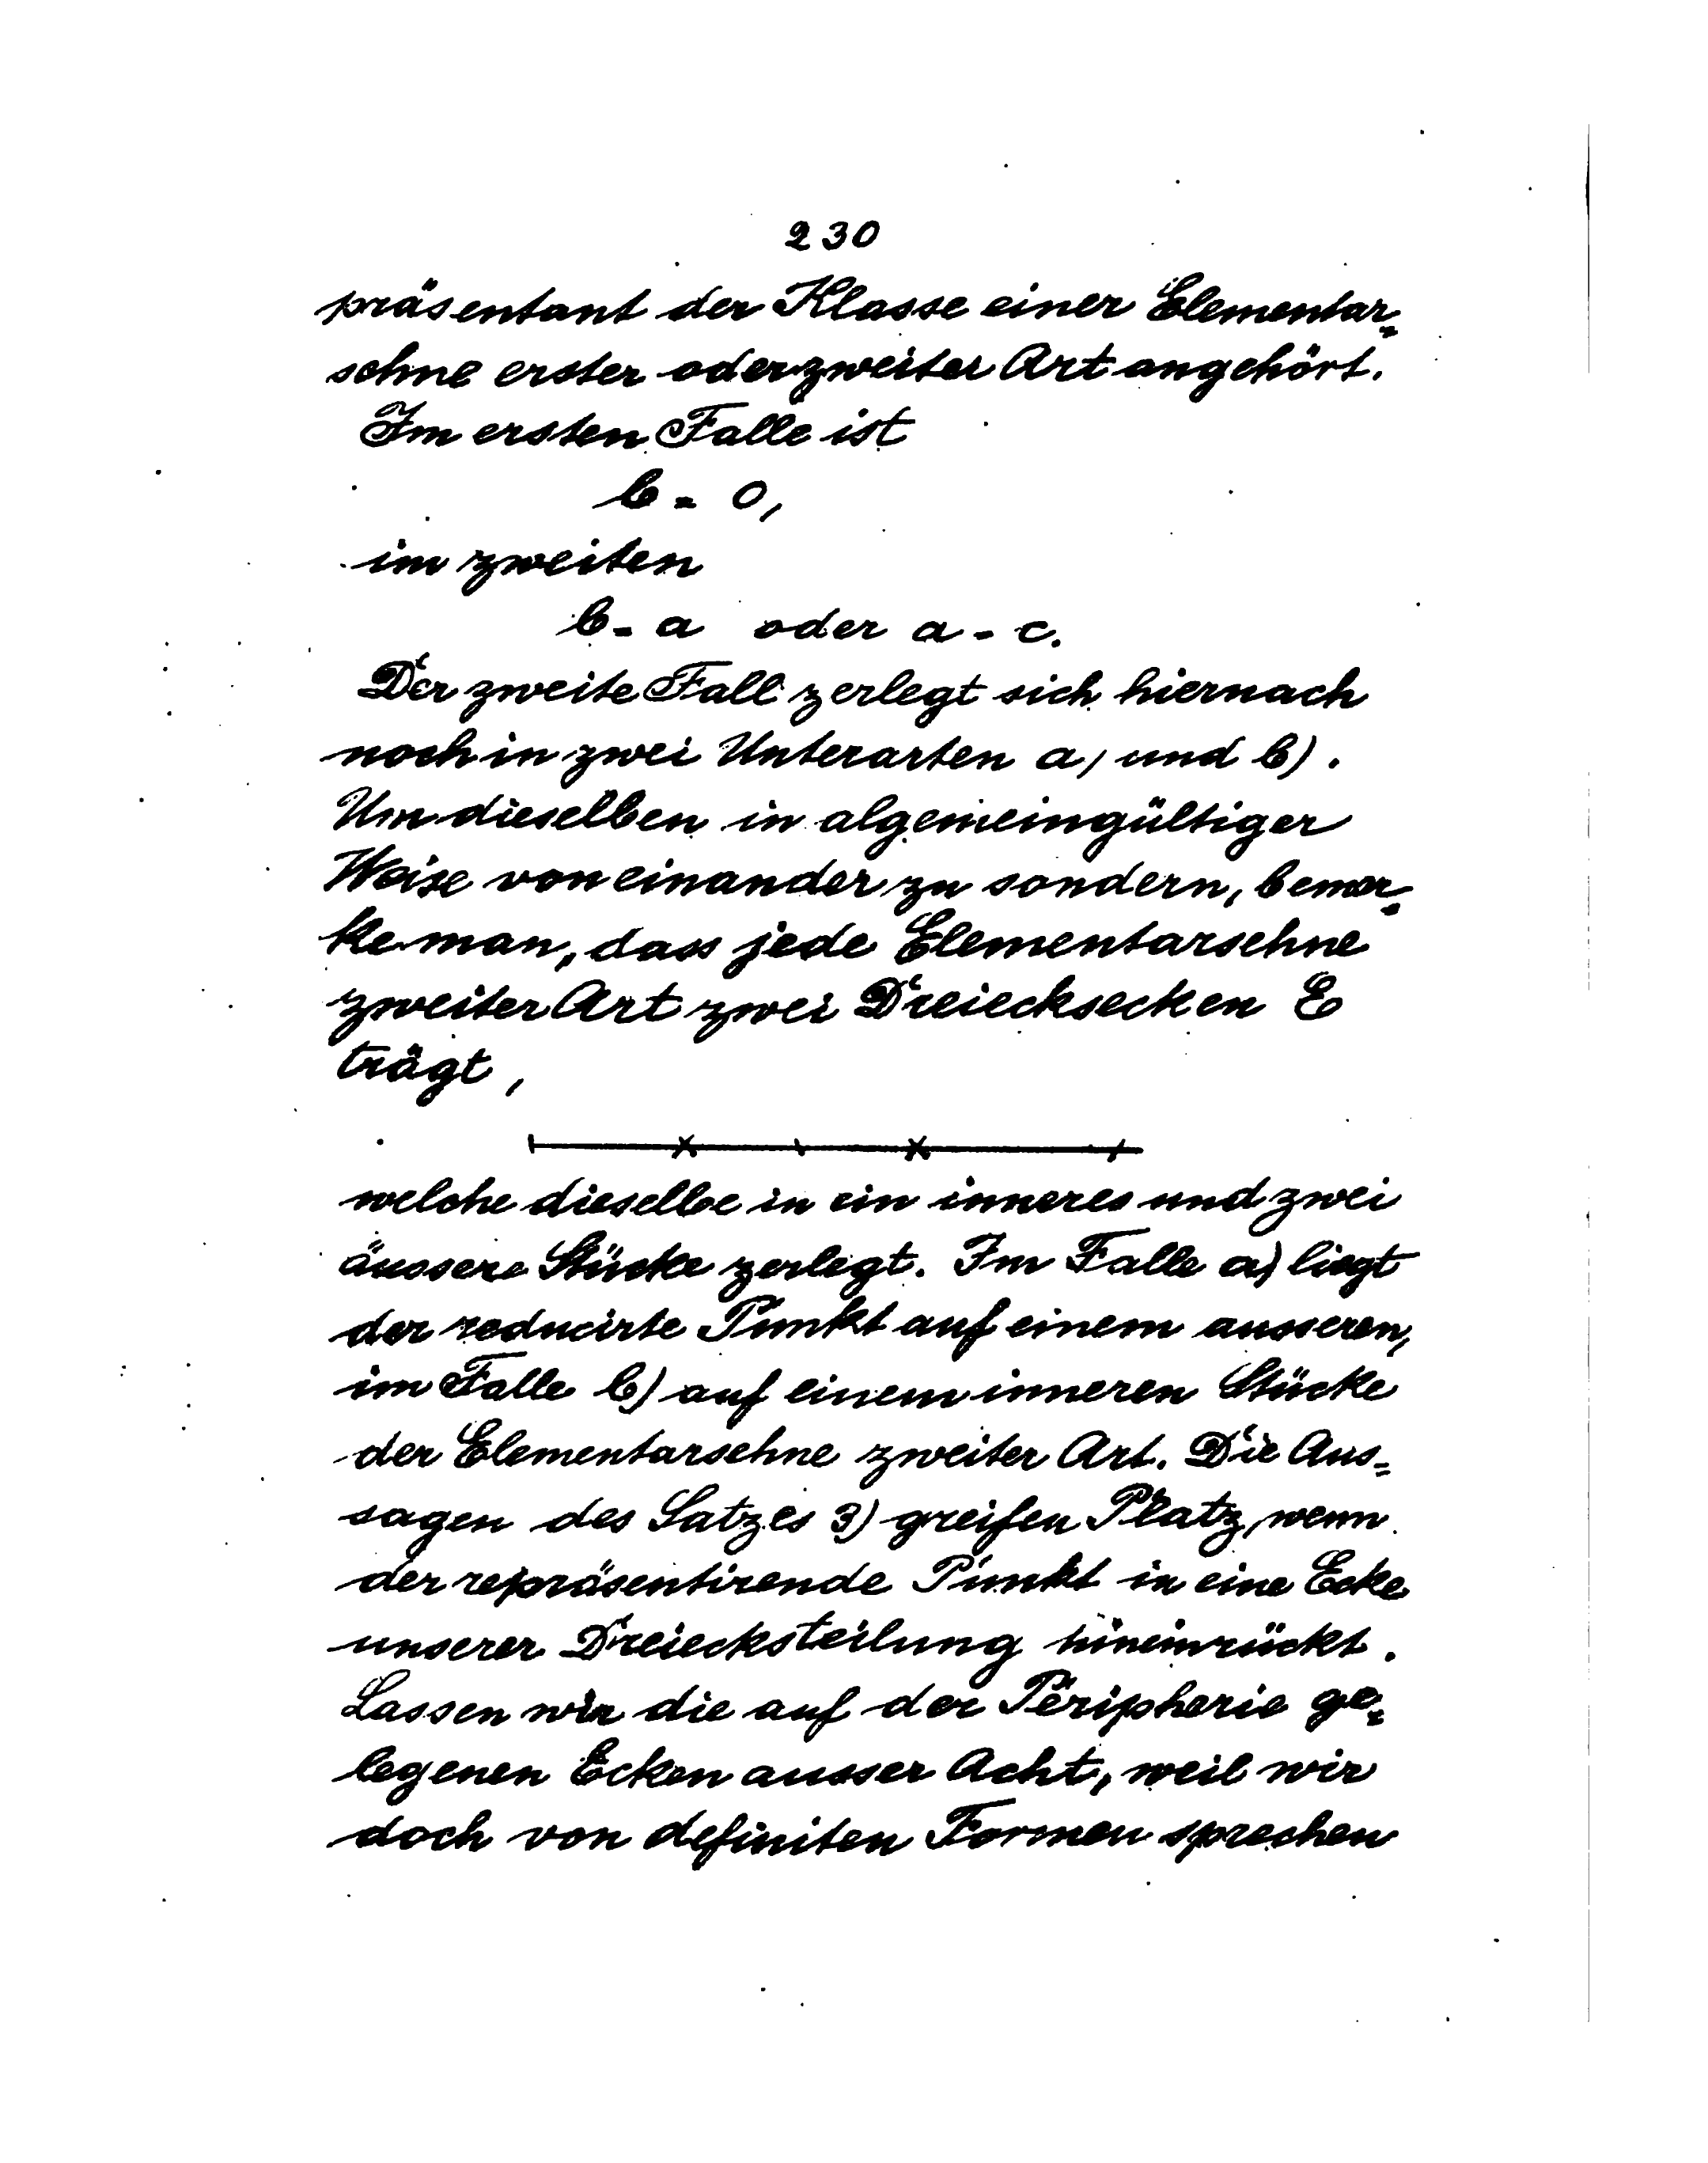 230
präsentant der Klasse einer Elementar=
sehne erster oder zweiter Art angehört.
Im ersten Falle ist
b = 0,
im zweiten
b = a oder a = c.
Der zweite Fall zerlegt sich hiernach
noch in zwei Unterarten a) und b).
Um dieselben in algemeingültiger
Weise von einander zu sondern, bemer=
ke man, dass jede Elementarsehne
zweiter Art zwei Dreiecksecken E
trägt,
welche dieselbe in ein inneres und zwei
äussere Stücke zerlegt. Im Falle a) liegt
der reducirte Punkt auf einem ausseren,
im Falle b) auf einem inneren Stücke
der Elementarsehne zweiter Art. Die Aus=
sagen des Satzes 3) greifen Platz, wenn
der repräsentirende Punkt in eine Ecke
unserer Dreiecksteilung hineinrückt.
Lassen wir die auf der Peripherie ge=
legenen Ecken ausser Acht, weil wir
doch von definiten Formen sprechen